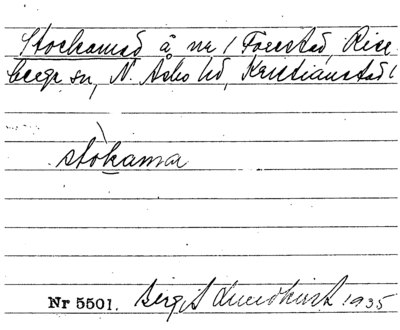 Stockamad å nr 1 Forestad, Rise-
berga sn, N. Åsbo hd, Kristianstad l
stòkamar
Nr 5501. Birgit Lundkvist 1935